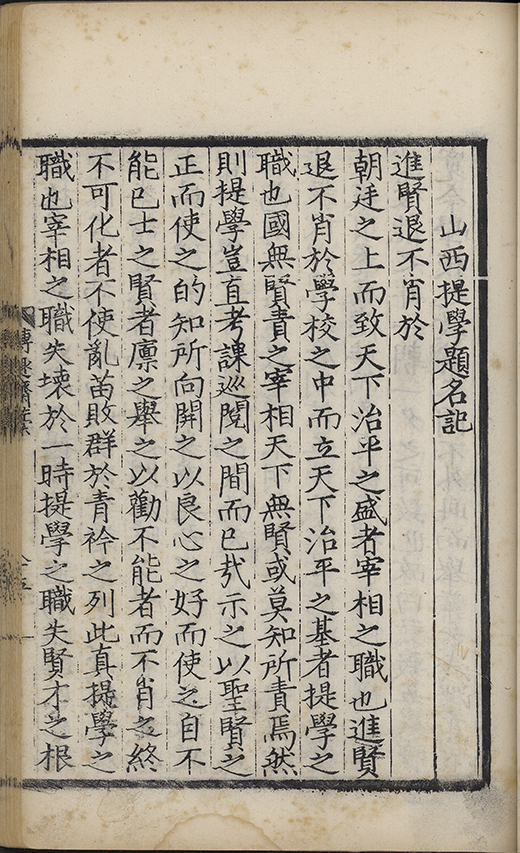 山西提學題名記
進賢退不肖於
朝廷之上而致天下治平之盛者宰相之職也進賢
退不肖於學校之中而立天下治平之基者提學之
職也國無賢責之宰相天下無賢或莫知所責焉然
則提學豈直考課巡閱之間而已㢤示之以聖賢之
正而使之的知所向開之以良心之好而使之自不
能已士之賢者廪之舉之以勸不能者而不肖之終
不可化者不使亂苗敗群於青衿之列此真提學之
職也宰相之職失壊於一時提學之職失賢才之根